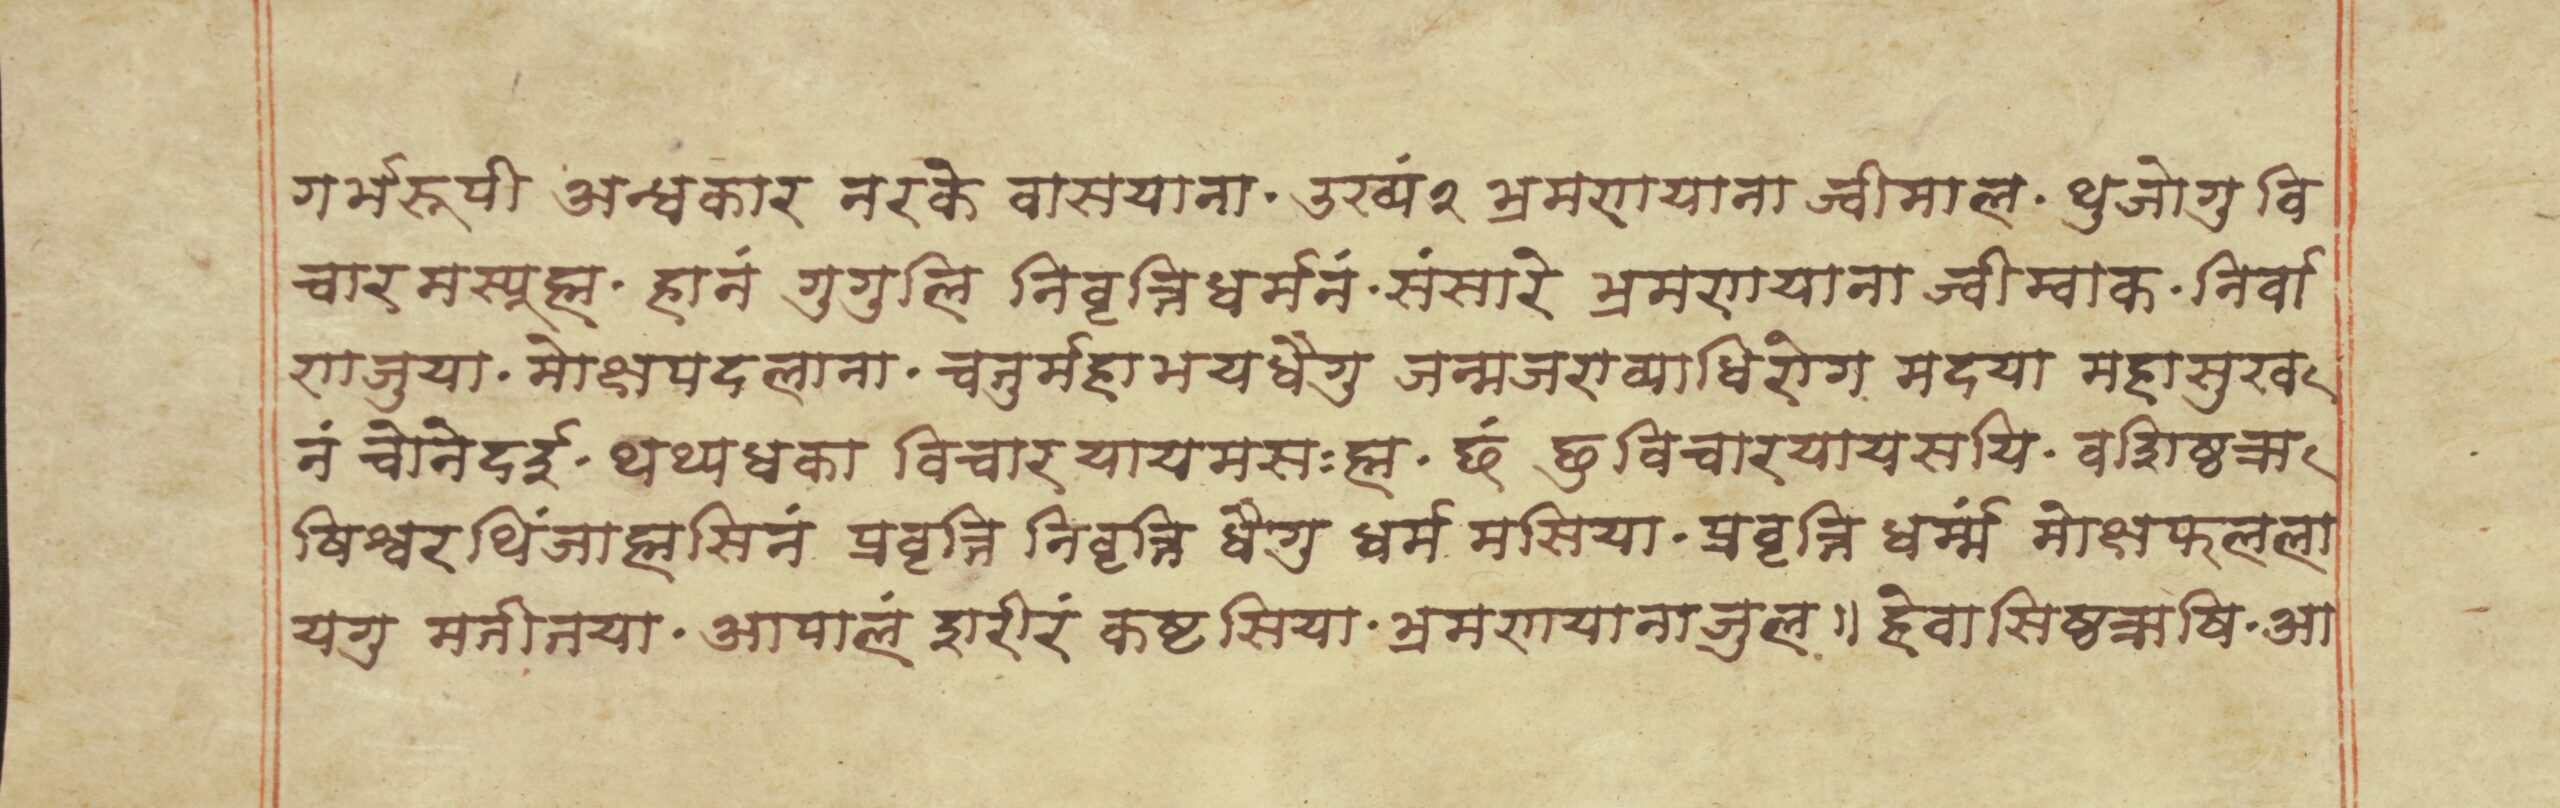 गर्भरूपी अन्धकार नरके वासयाना· उखयं२ भ्रमणयाना ज्वीमाल· थुजोगु वि
चारमस्यूह्म· हानं गुगुलि निवृत्तिधर्मनं· संसारे भ्रमणयाना ज्वीम्वाक· निर्वा
णजुया· मोक्षपदलाना· चतुर्महाभयधैगु जन्मजराव्याधिरोग मदया महासुख
नं चोनेदई· थथ्यधका विचारयायमसःह्म· छं छुविचारयायसयि· वशिष्ठऋ
षिश्वरथिंजाह्मसिनं प्रवृत्ति निवृत्ति धैगु धर्म मसिया· प्रवृत्ति धर्म्मं मोक्षफलला
यगु मतीतया· आपालं शरीरं कष्टसिया· भ्रमणयानाजुल॥ हेवासिष्ठऋषि· आ